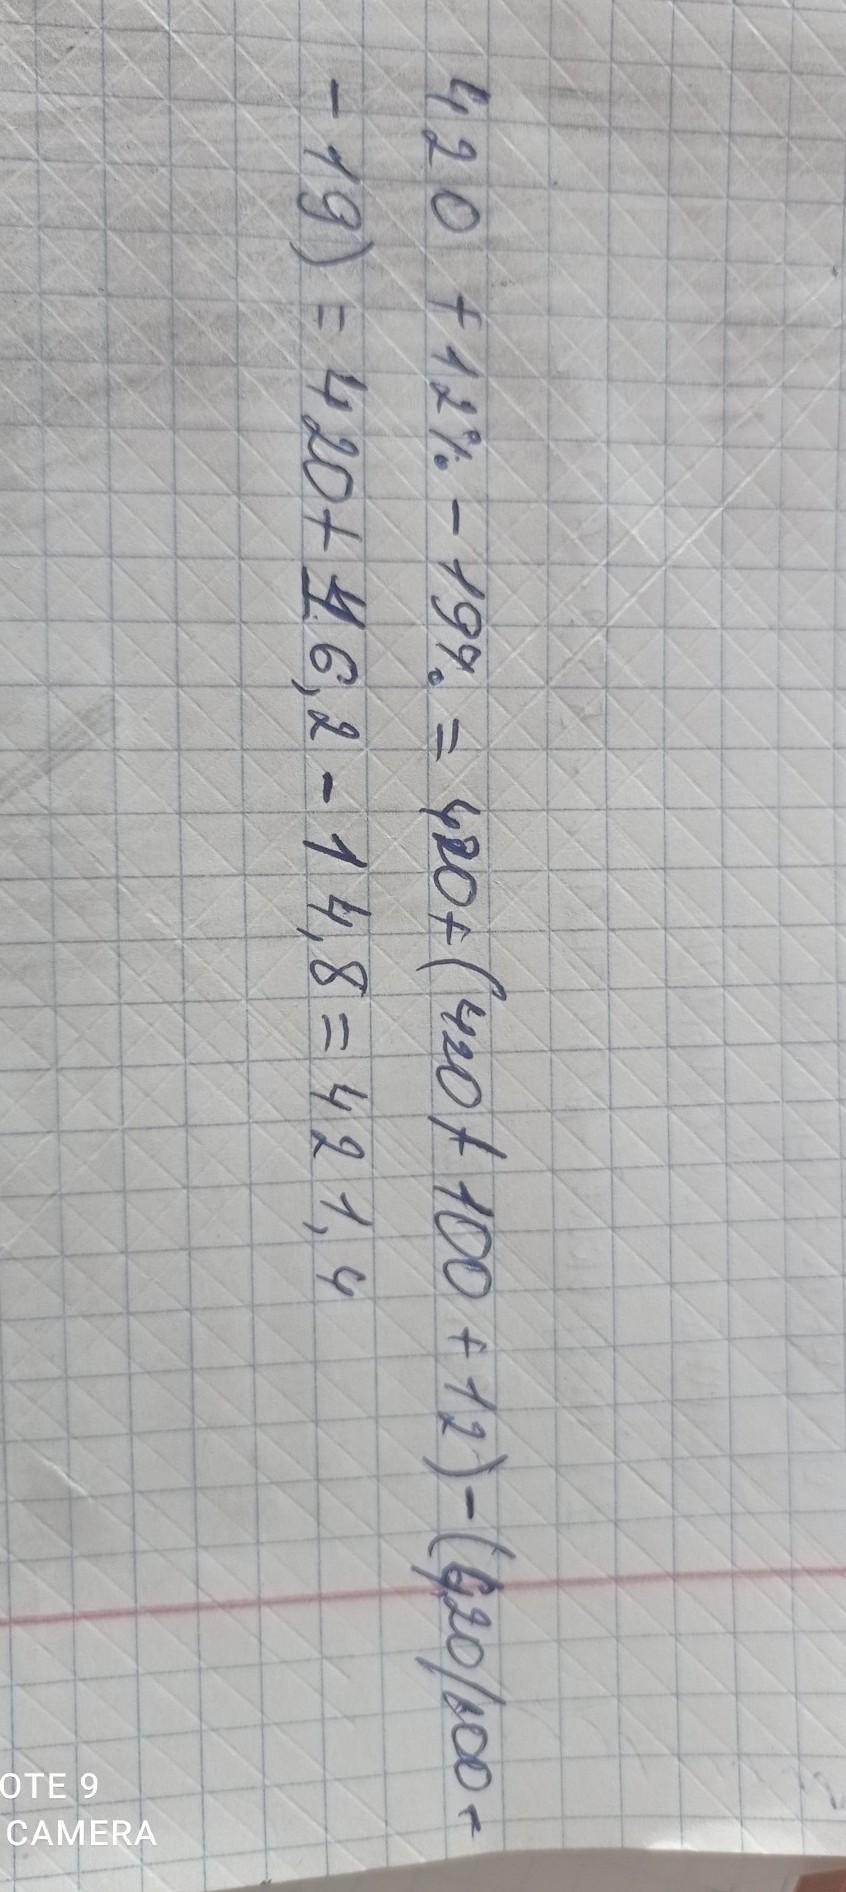 420 + 12% - 19% = 420 + (420 / 100 + 12) - (420/100 -
- 19) = 420 + 16,2 - 14,8 = 421,4
OTE 9
CAMERA